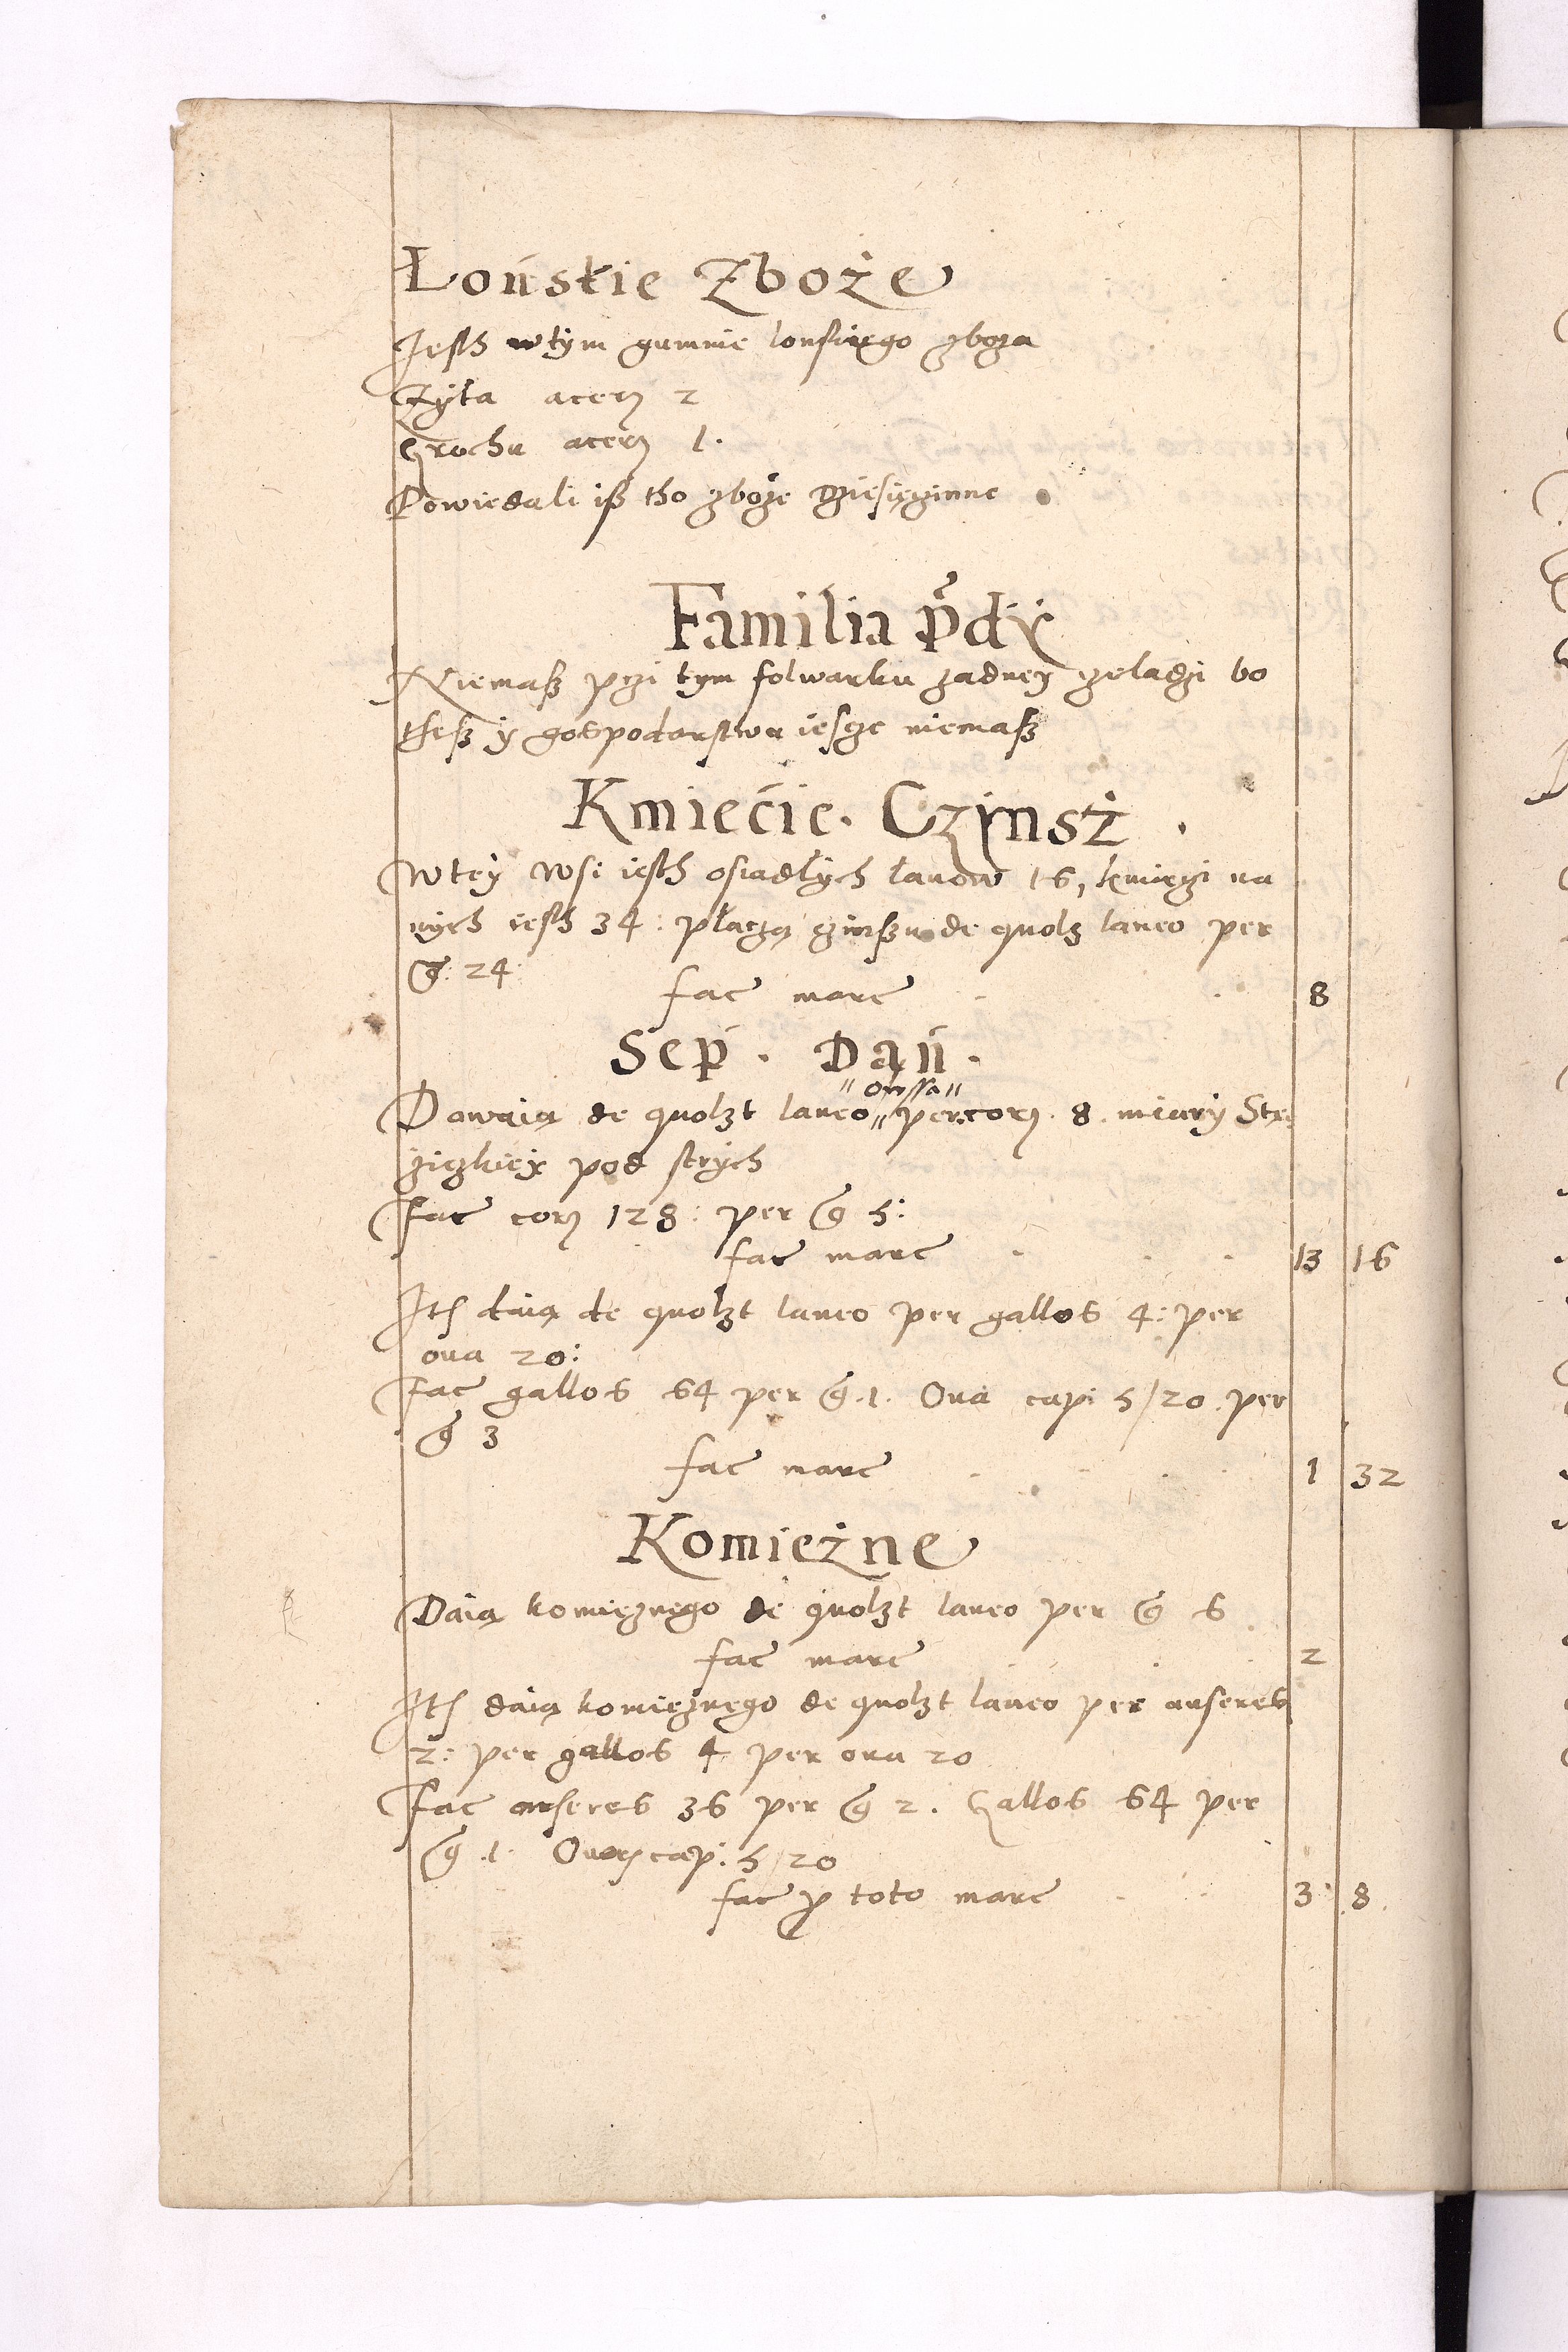 Łońskie Zboże
Jesth wtym gumnie lonskiego zboza
Zyta acerỽ 2
Grochu acerỽ 1.
Powiedali isz tho zboże Dziesięzinne
Familia p̃dÿ
Niemasz przi tym folwarku zadney zeladzi bo
thesz y gospodarstwa iescze niemasz
Kmiećie. Czÿnsż.
wtey wsi iesth osiadłych łanow 16, kmieczi na
nych iesth 34: płaczą czinszu de quolz laneo per
g: 24
fac marc 8
Sep. Dań.
"owssa"
Dawaią de quolzt laneo" per corỽ. 8. miary Strę
ziczkiey pod strych
Fac corỽ 128: per g 5:
fac marc 13 16
Ith daią de quolzt laneo per gallos 4: per
oua 20:
Fac gallos 64 per g.1. Oua capi 5/20. per
g 3
fac marc 1 32
Komieżne
Daią komieznego de quolzt laneo per g 6
fac marc 2
Ith daią komieznego de quolzt laneo per anseres
2: per gallos 4 per oua 20
Fac anseres 36 per g 2. Gallos 64 per
g .1. Ouorỽ cap: 5/20
fac p toto marc 3 8